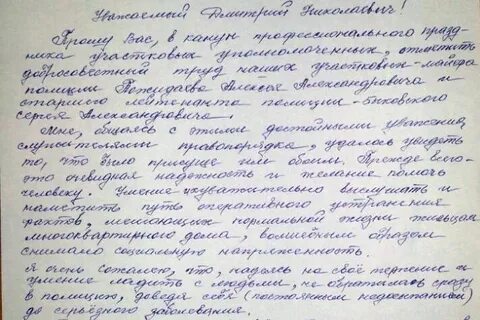 Уважаемый Дмитрий Николаевич!
Прошу Вас, в канун профессионального празд-
ника участковых уполномоченных, отметить
добросовестный труд наших участковых - майора
полиции Пожидаева Алексея Александровича и
старшего лейтенанта полиции - Быковского
Сергея Александровича.
Мне, общаясь с этими достойными уважения,
служителями правопорядка, удалось увидеть
то, что было присуще им обоим. Прежде всего-
это очевидная надежность и желание помочь
человеку. Умение уважительно выслушать и
наметить путь оперативного устранения
фактов, мешающих нормальной жизни жильцам
многоквартирного дома, волшебным образом
снимало социальную напряженность.
Я очень сожалею, что, надеясь на своё терпение и
умение ладить с людьми, не обратилась сразу
в полицию, доведя себя (постоянным недосыпанием)
до серьёзного заболевания.